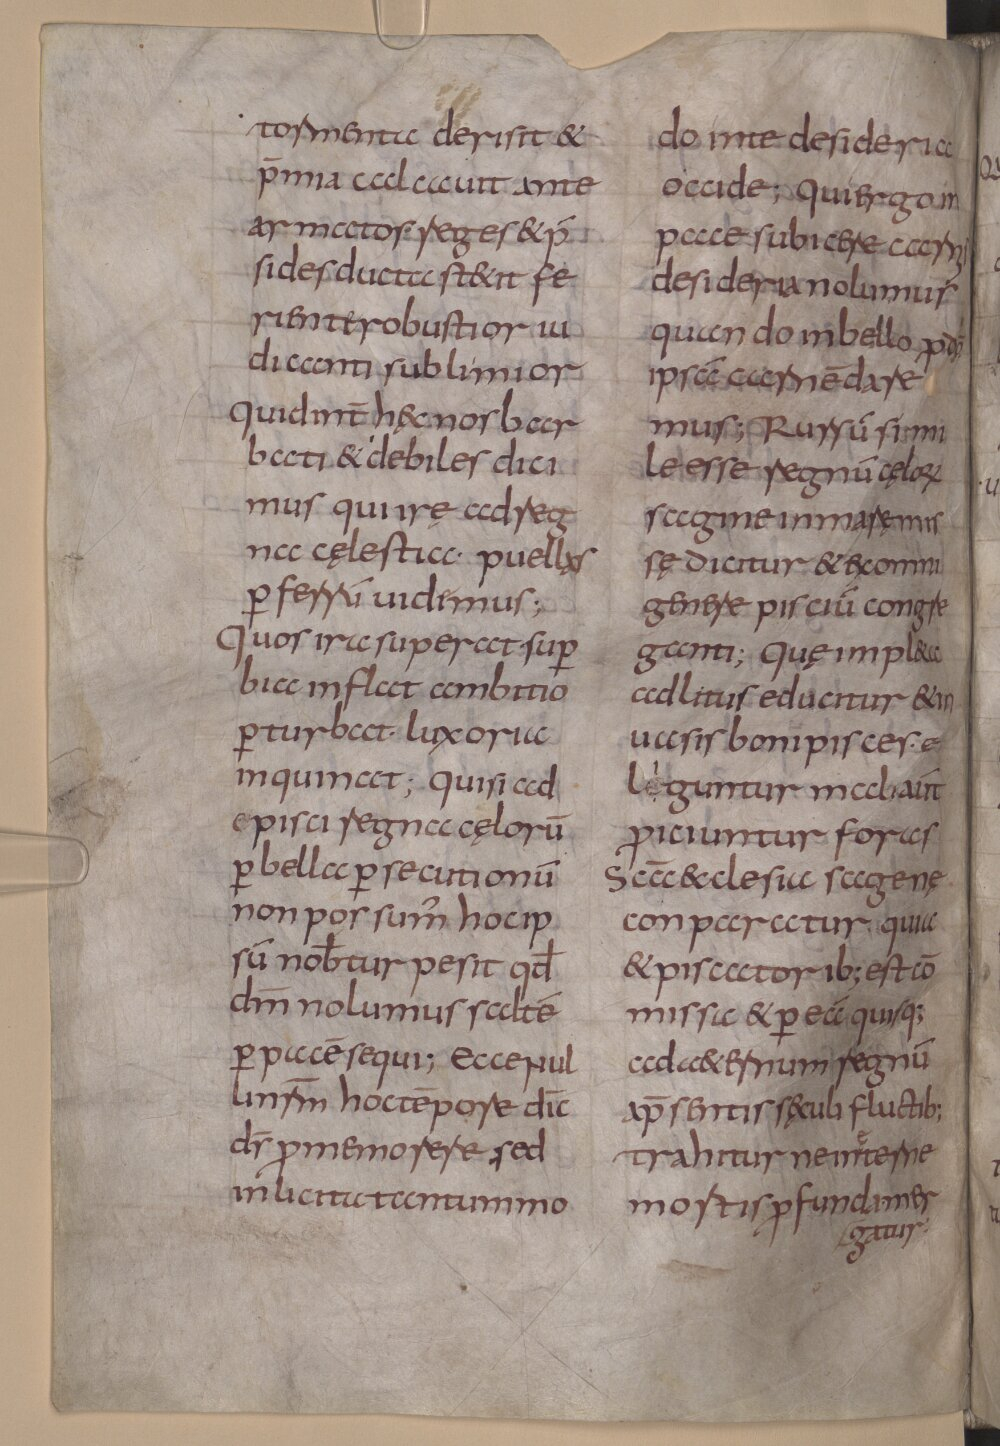 tormenta derisit &
p̄mia calcauit ante
armatos reges & p̄
sides ducta st&it fe
rienterobustior iu
dicanti sublimior
Quid int̄ hęc nos bar
bati & debiles dici
mus qui irę ad reg
na cęlestia. puellas
ꝑ ferrū uidemus;
Quos ira superat. suꝑ
bia inflat ambitio
ꝑturbat. luxoria
inquinat; Quisi ad
episci regna cęlorū
ꝑ bella ꝑsecutionū
non possum̄ hoc ip
sū nob̄ turpe sit qd̄
dm̄ nolumus saltē
ꝑ pacē sequi; Ecce nul
li nr̄m hoc tēpore dīc
ds̄ ꝓ me morere sed
inlicita tantummo
do in te desideria
occide; Qui ergo in
pace subicere carnis
desideria nolumus
quando in bello ꝓ dō
ipsā carnē dare
mus; Rursū simi
le esse regnū cęloꝝ
sagine in mare mis
sę dicitur & ex omni
genere pisciū congre
ganti; Quę impl&a
ad litus educitur & in
uasis boni pisces. e
leguntur mali aūt
ꝓiciuntur foras
Scā &clesia sagenę
conparatur. quia
& piscatorib; est cō
missa & ꝑ eā quisq;
ad a&ernum regnū
a p̄sentis sęculi fluctib;
trahitur ne in ęterne
mortis ꝓfunda mer
gatur.